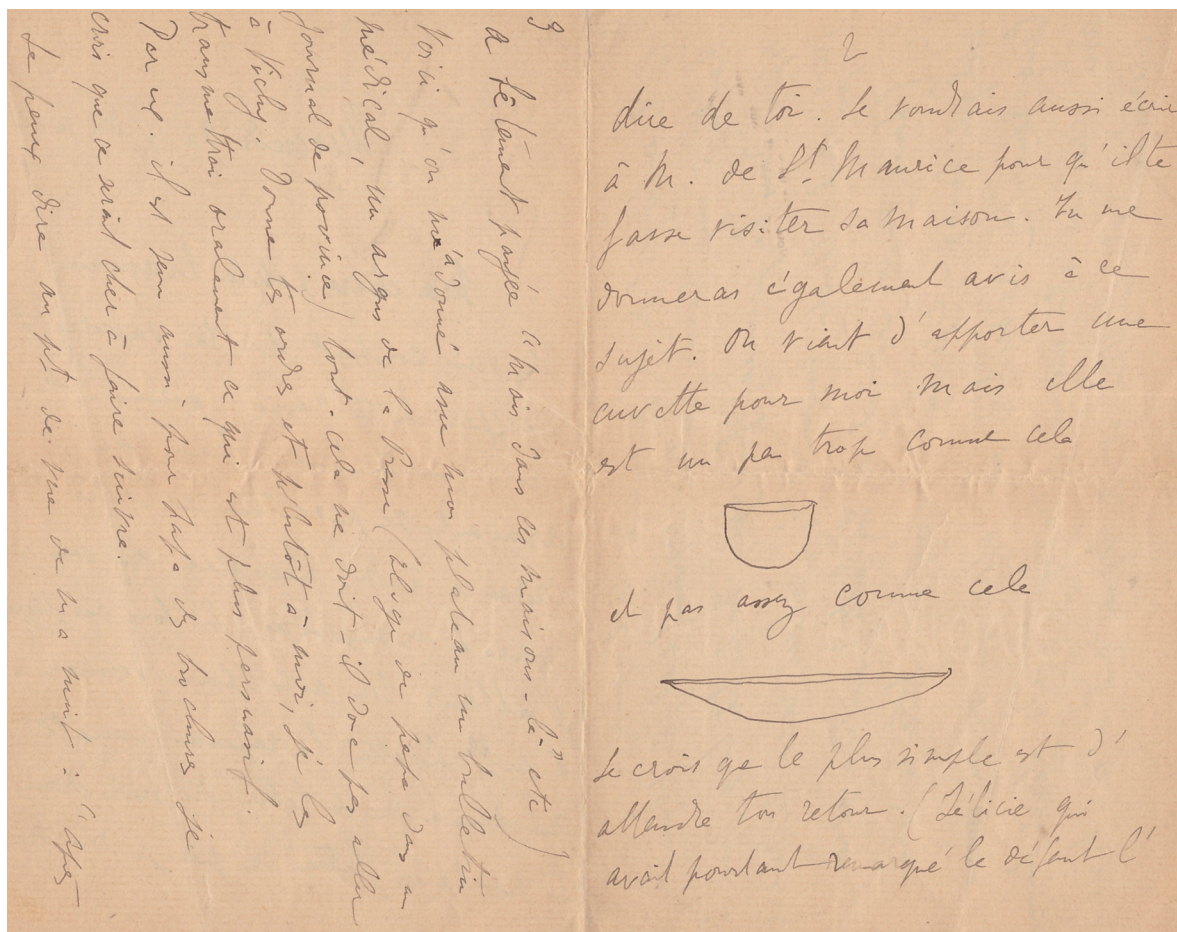 2
dire de toi. Je voudrais aussi écrire
à M. de St Maurice pour qu'il te
fasse visiter sa maison. Tu me
donneras également avis à ce
sujet. On vient d'apporter une
cuvette pour moi mais elle
est un peu trop comme cela
et pas assez comme cela
Je crois qe le plus simple est d'
attendre ton retour. (Félicie qui
avait pourtant remarqué le défaut l'
3
a fêtement payée "mais dans ces maisons-là" etc)
Voici qu'on m'a donné avec mon plateau un bulletin
médical, un argus de la Presse (éloge de papa dans un
journal de province) tout cela ne doit-il donc pas aller
à Vichy. Donne tes ordres et plutôt à moi, je les
transmettrai oralement ce qui est plus persuasif.
Par ex. il est venu aussi pour Papa des brochures je
crois que ce serait cher à faire suivre.
Je peux dire au pt de vue de ma nuit : "après